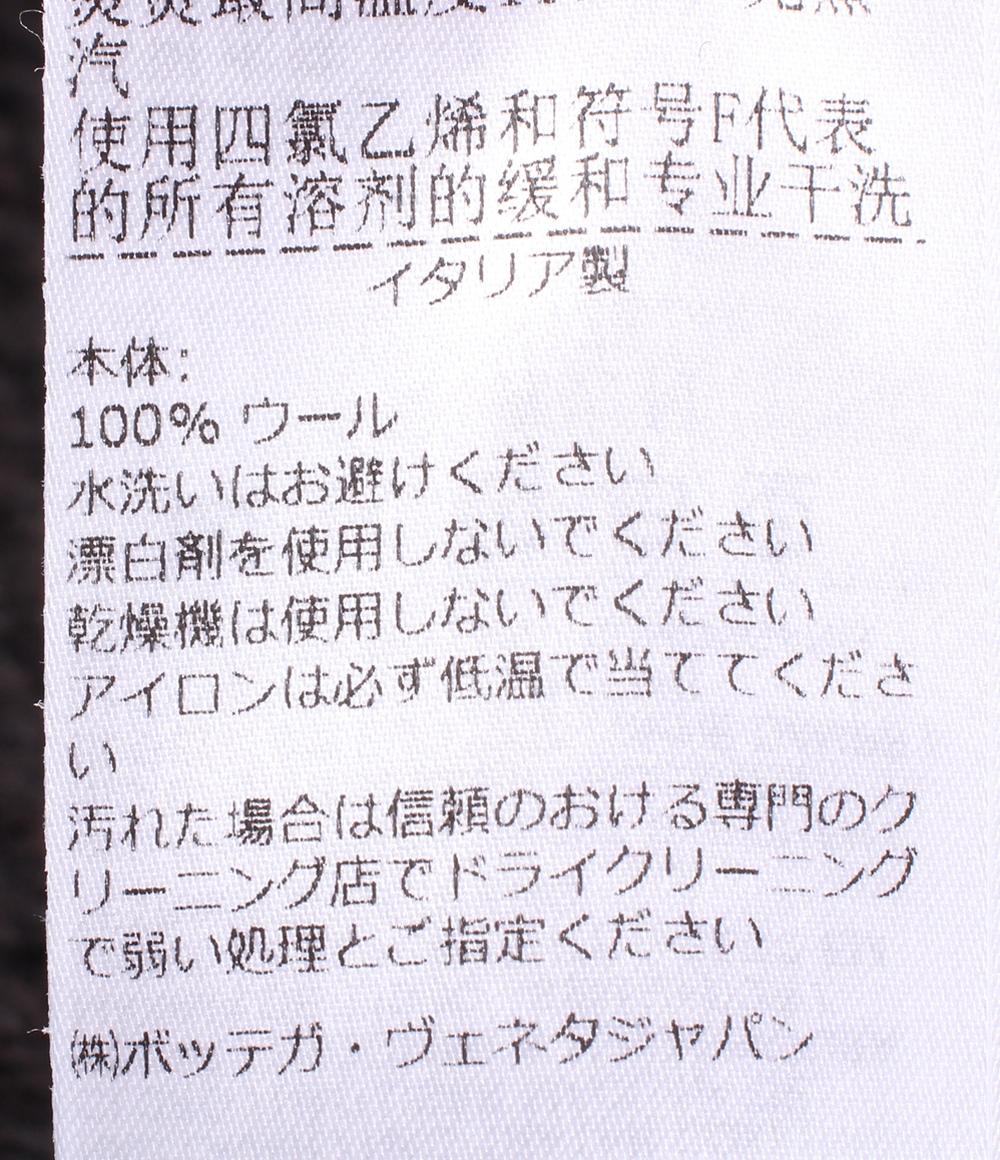 汽
使用四氯乙烯和符号F代表
的所有溶剂的缓和专业干洗
イタリア製
本体:
100% ウール
水洗いはお避けください
漂白剤を使用しないでください
乾燥機は使用しないでください
アイロンは必ず低温で当ててくださ
い
汚れた場合は信頼のおける専門のク
リーニング店でドライクリーニング
で弱い処理とご指定ください
㈱ボッテガ・ヴェネタジャパン